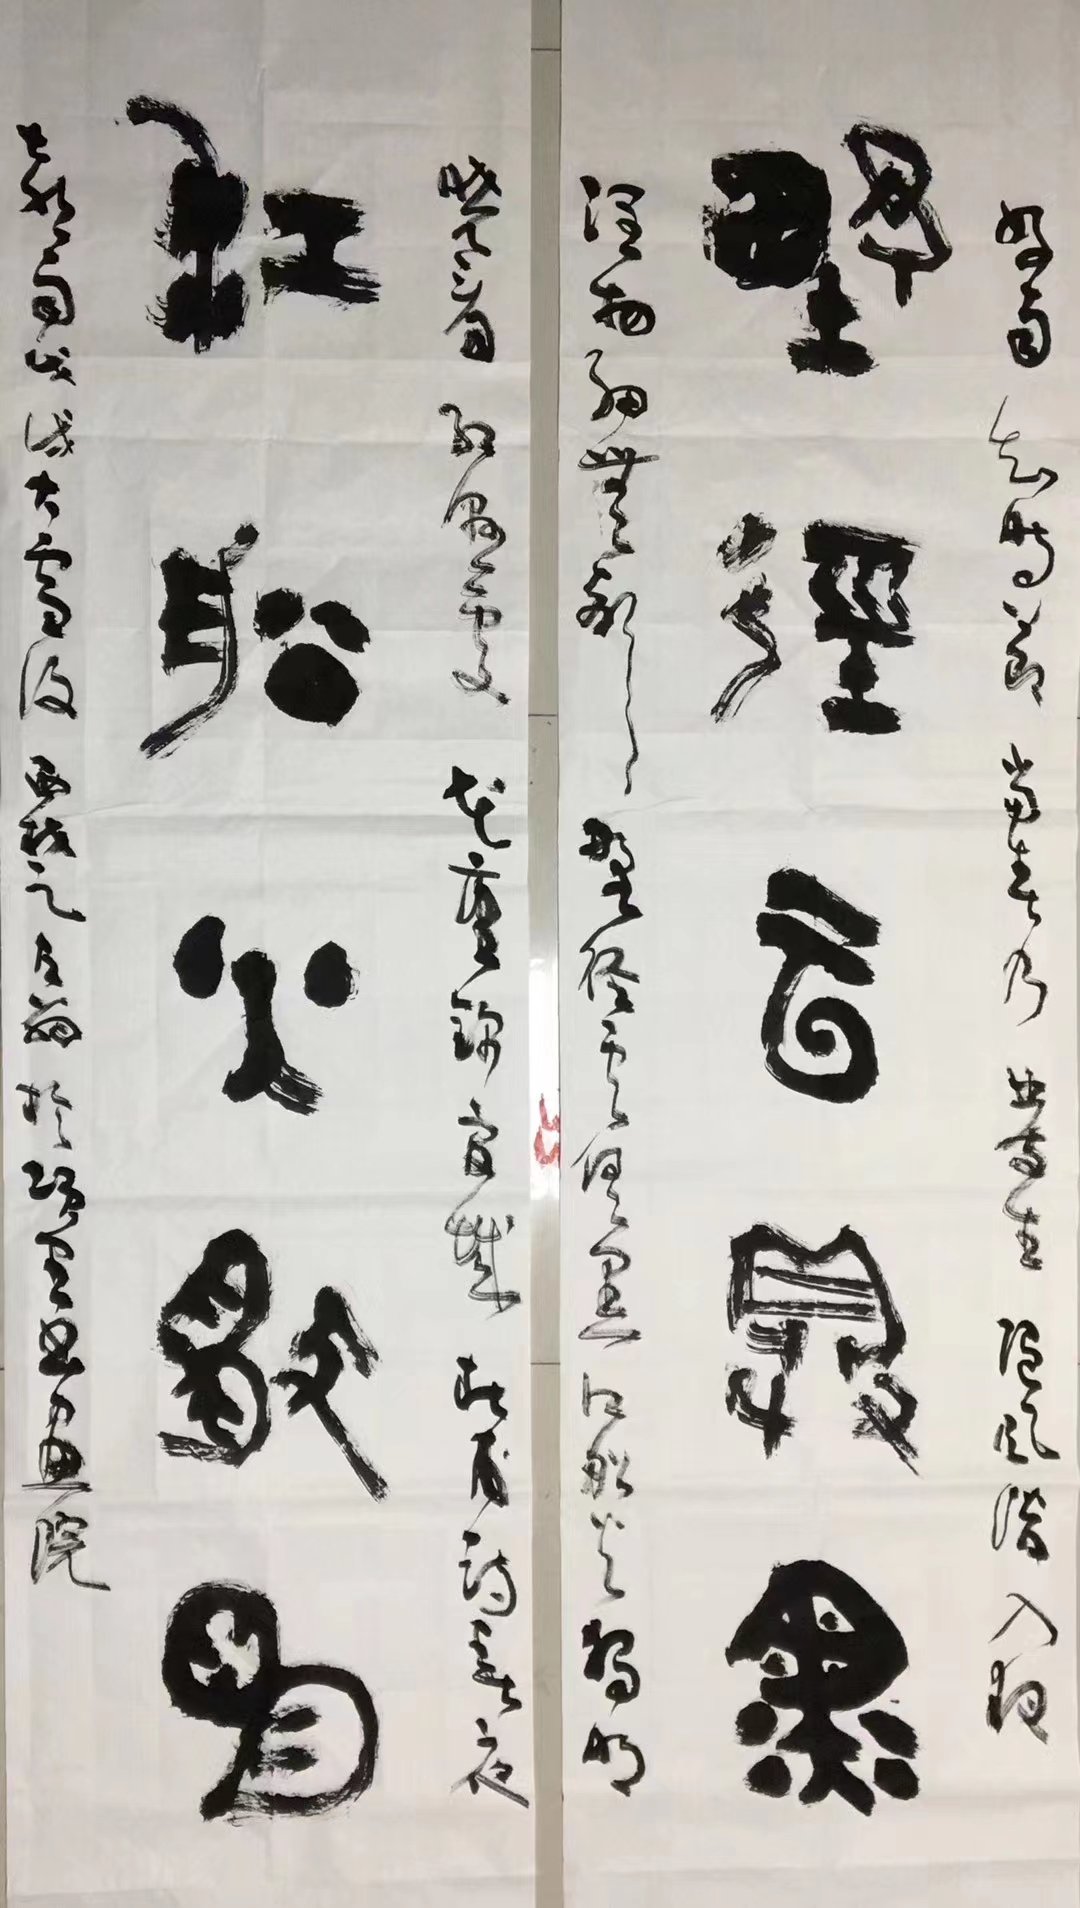 好雨知時節當春乃發生隨風潛入夜
野徑云俱黑
潤物細無聲野徑雲俱黑江船火獨明
曉看紅濕處花重錦官城杜甫詩春夜
江船火獨明
喜雨戊戌大雪後於書畫院